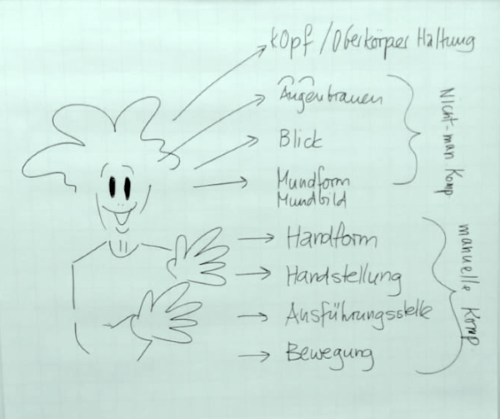 Kopf / Oberkörper Haltung
Augenbrauen
Blick
Mundform
Mundbild
Nicht-man Komp
Handform
Handstellung
Ausführungsstelle
Bewegung
manuelle Komp